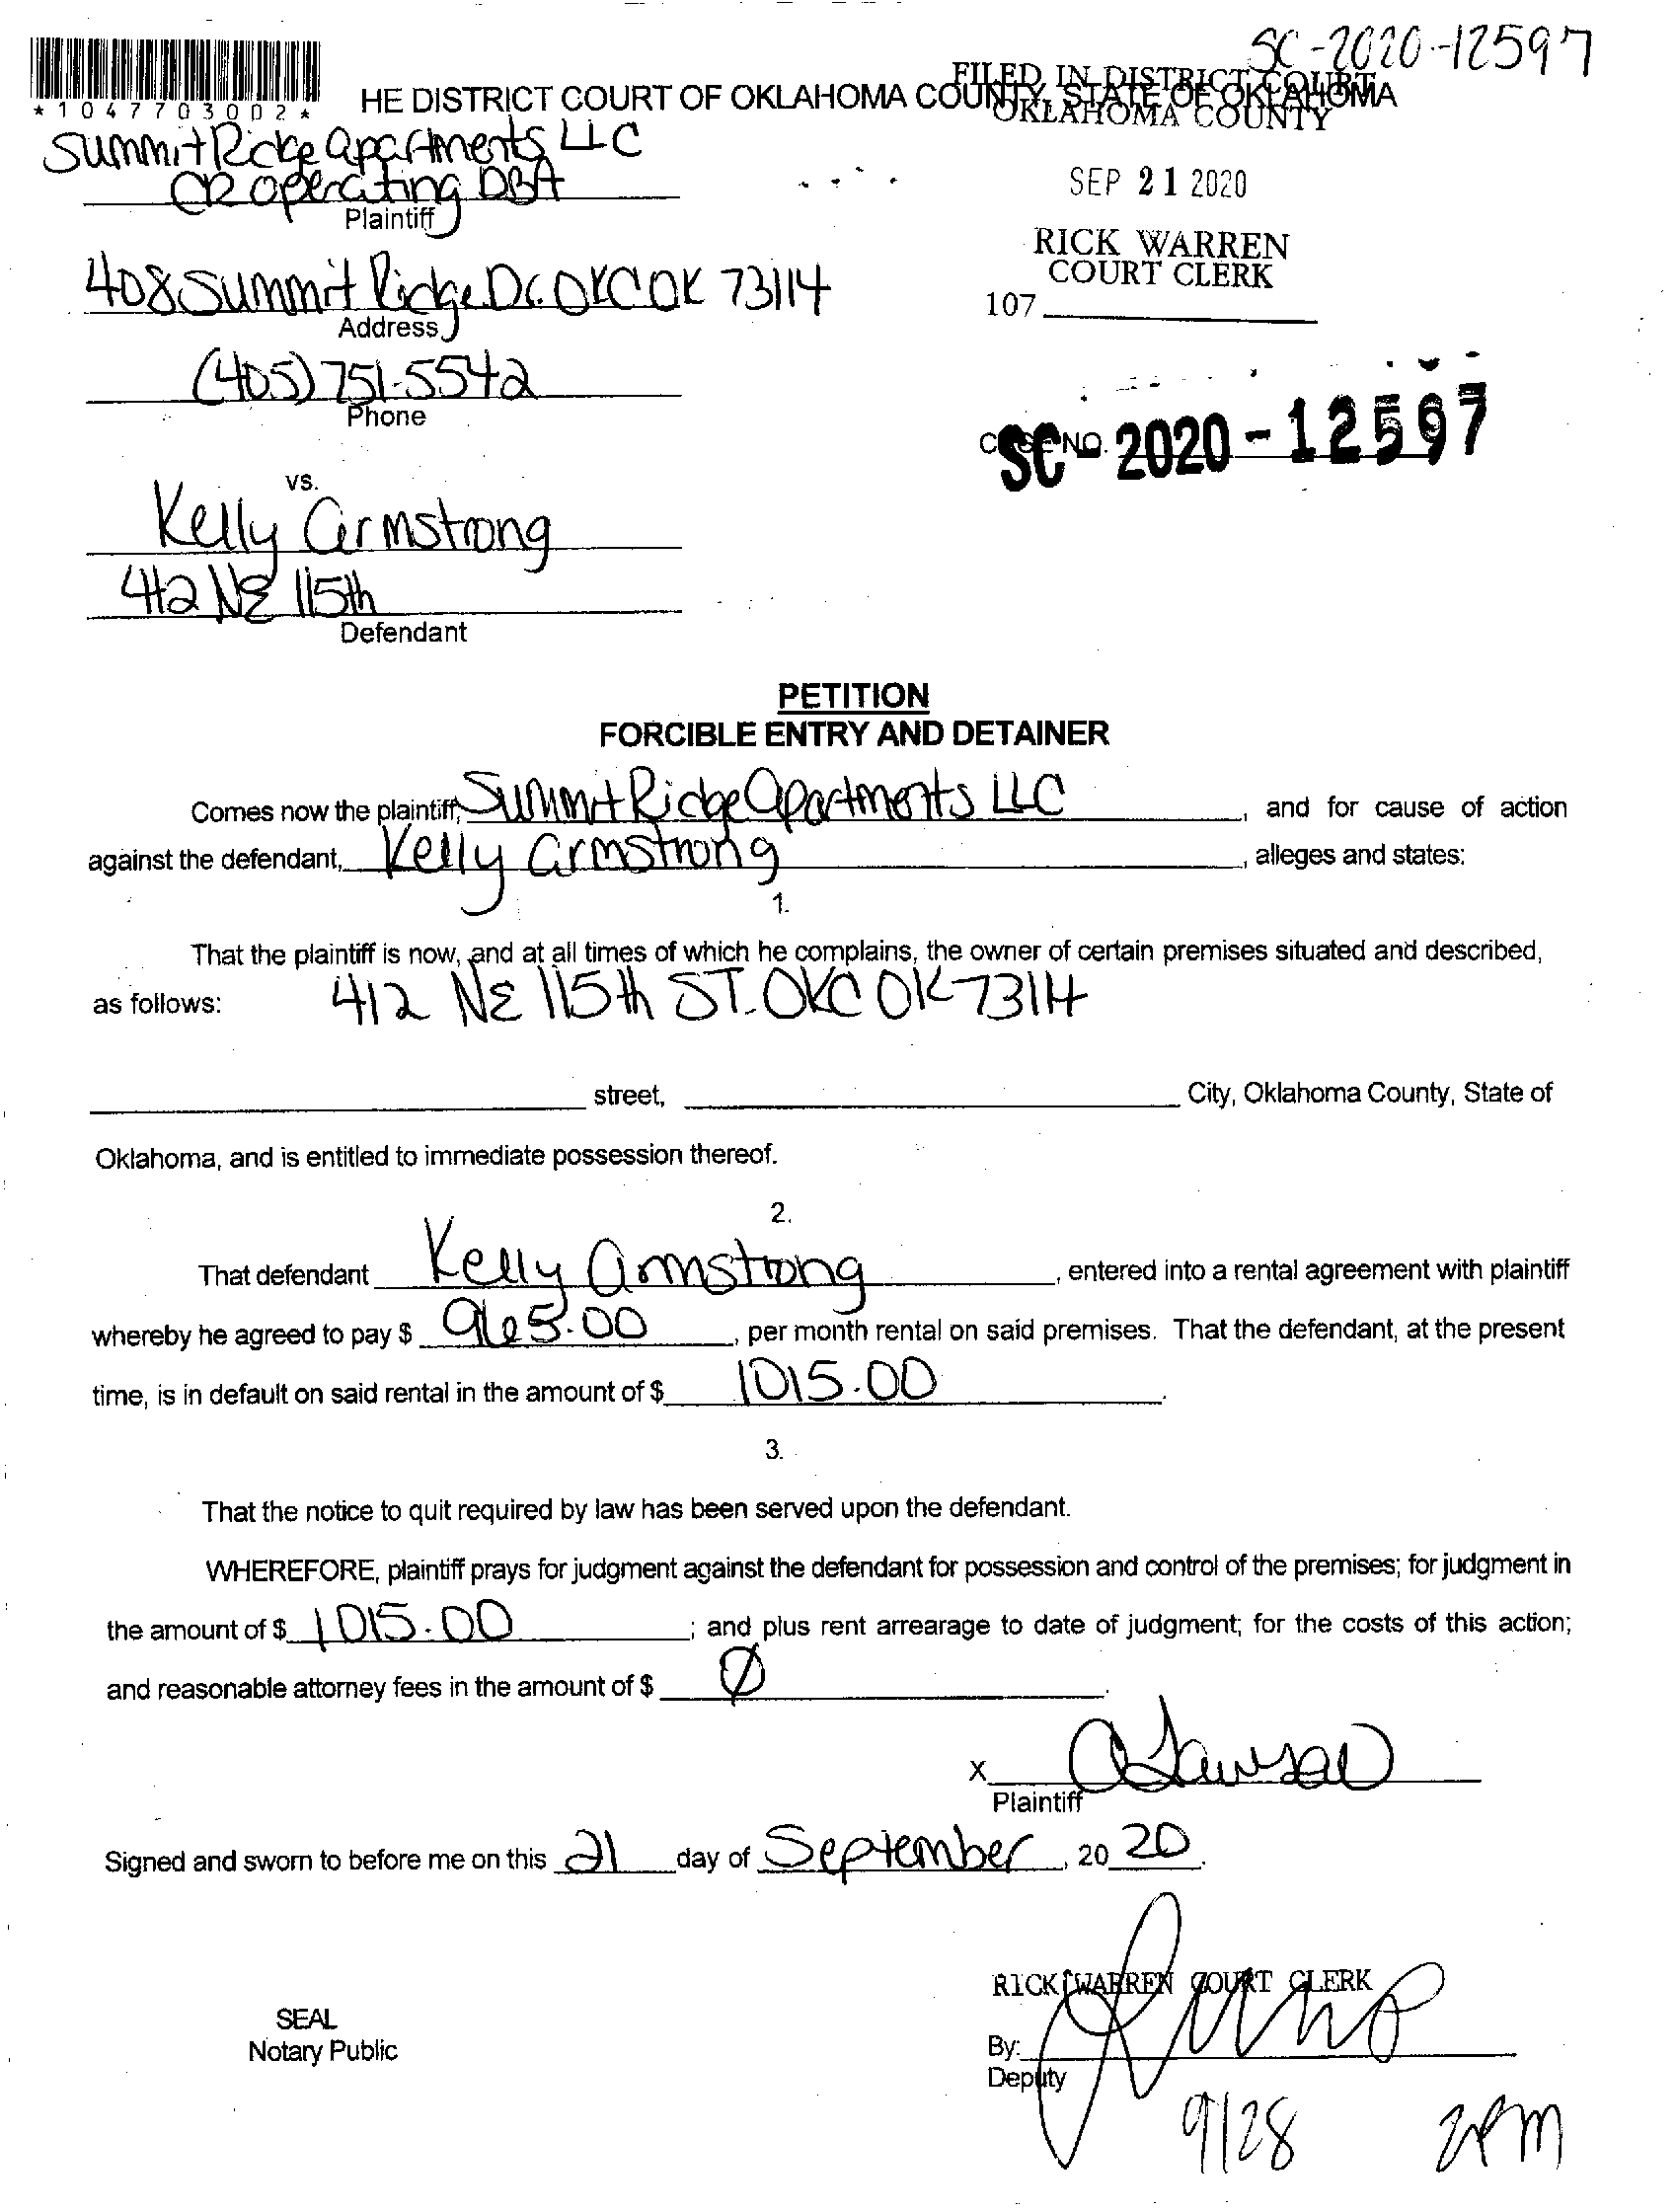 SC-2020-12597
*1047703002*
HE DISTRICT COURT OF OKLAHOMA COUNTY, STATE OF OKLAHOMA
FILED IN DISTRICT COURT
OKLAHOMA COUNTY
Summit Ridge Apartments LLC
CR Operating DBA
Plaintiff
SEP 21 2020
RICK WARREN
COURT CLERK
107
408 Summit Ridge Dr. OKC OK 73114
Address
(405) 751-5542
Phone
CASE NO.
SC-2020-12597
vs.
Kelly Armstrong
412 NE 115th
Defendant
PETITION
FORCIBLE ENTRY AND DETAINER
Comes now the plaintiff, Summit Ridge Apartments LLC, and for cause of action
against the defendant, Kelly Armstrong, alleges and states:
1.
That the plaintiff is now, and at all times of which he complains, the owner of certain premises situated and described,
as follows: 412 NE 115th ST. OKC OK 73114
street, City, Oklahoma County, State of
Oklahoma, and is entitled to immediate possession thereof.
2.
That defendant Kelly Armstrong, entered into a rental agreement with plaintiff
whereby he agreed to pay $ 965.00, per month rental on said premises. That the defendant, at the present
time, is in default on said rental in the amount of $ 1015.00.
3.
That the notice to quit required by law has been served upon the defendant.
WHEREFORE, plaintiff prays for judgment against the defendant for possession and control of the premises; for judgment in
the amount of $ 1015.00; and plus rent arrearage to date of judgment; for the costs of this action;
and reasonable attorney fees in the amount of $ Ø.
X
Plaintiff
Signed and sworn to before me on this 21 day of September, 2020.
RICK WARREN COURT CLERK
SEAL
Notary Public
By:
Deputy
9/28 2PM